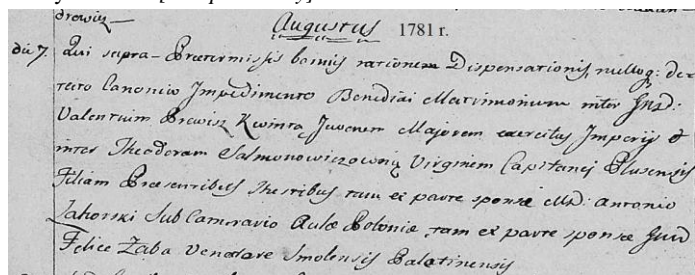 drewicz —
Augustus 1781 r.
die 7. Qui supra — Praetermissis bannis rationem Dispensationis, nulloq: de
tecto Canonico Impedimento Benedixi Matrimonium inter Gnd:
Valentium Brewisz Kwinta Juvenem Majorem exercitus Imperij et
inter Theodoram Salmonowiczowną Virginem Capitanei Plusensis
Filiam Praesentibus Testibus tam ex parte sponsi Md: Antonio
Jahorski Sub Camerario Aulae Poloniae tam ex parte sponsae Gnd
Felice Zaba Venatore Smolensis Palatinensis